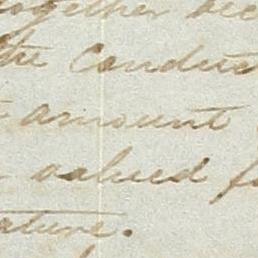 together
the conduct
amount
valued
ature.